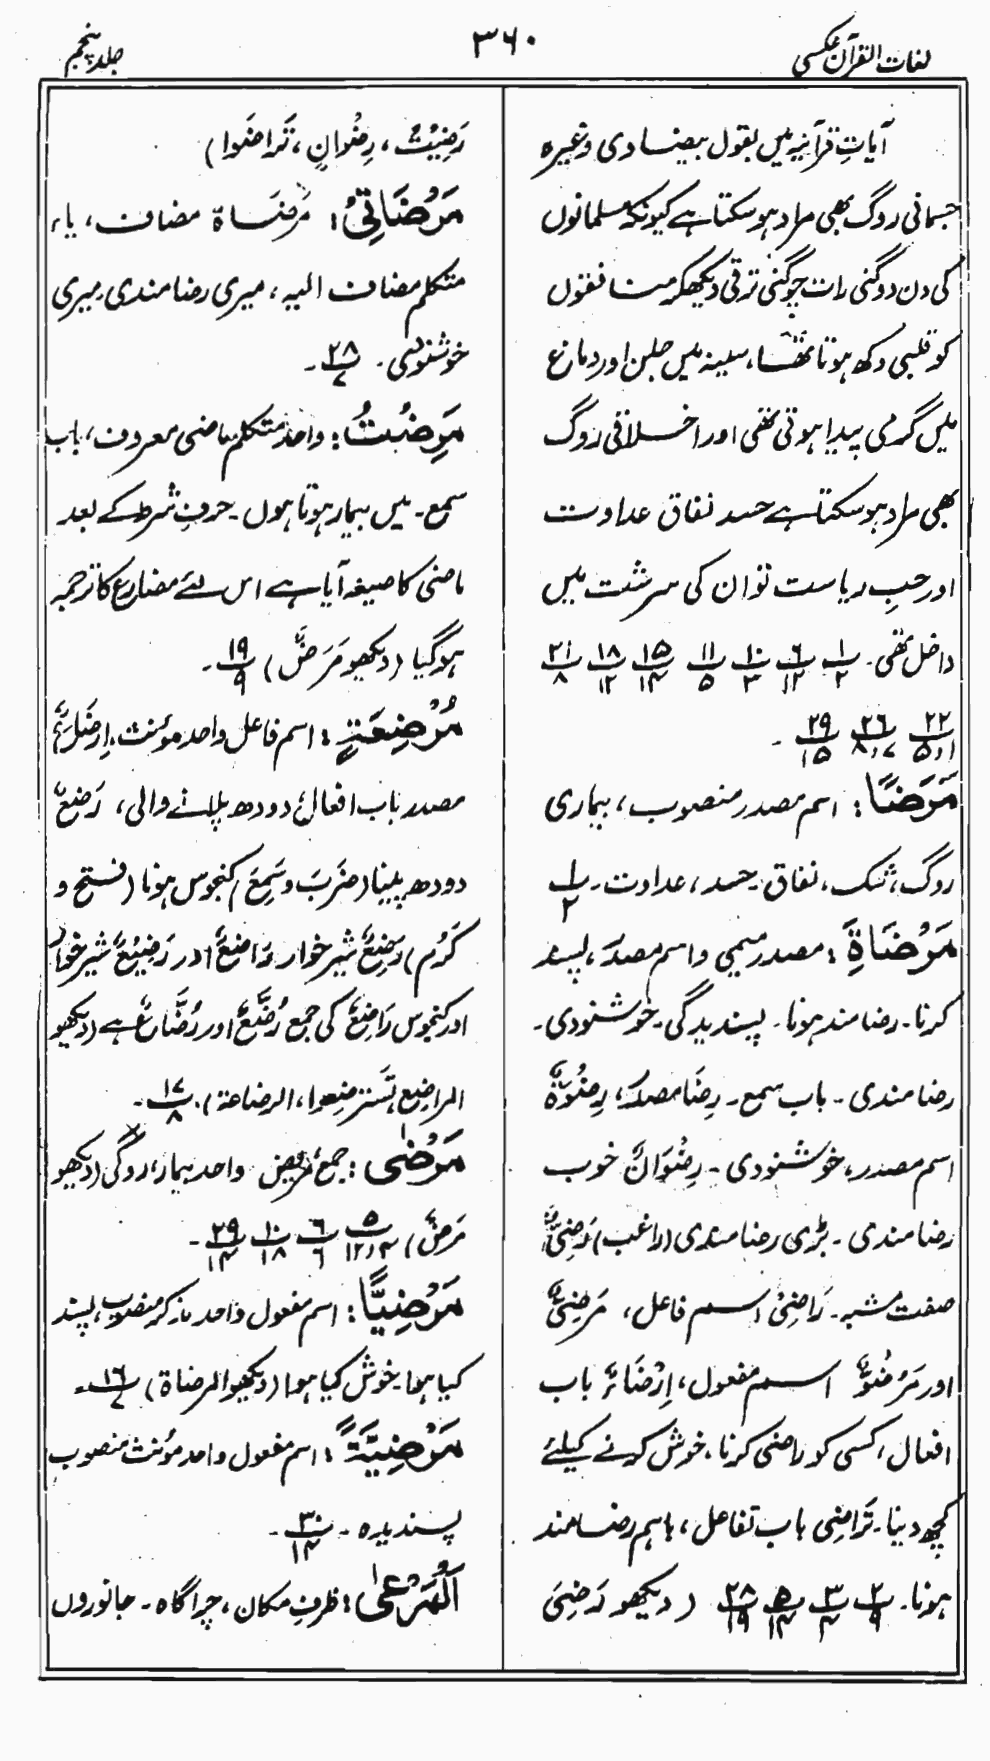 لغات القرآن عکسی
۳۶۰
جلد پنجم
آیاتِ قرآنیہ میں بقول بیضاوی وغیرہ
جسمانی روگ بھی مراد ہو سکتا ہے کیونکہ مسلمانوں
کی دن دوگنی رات چوگنی ترقی دیکھ کر منافقوں
کو قلبی دکھ ہوتا تھا، سینہ میں جلن اور دماغ
میں گرمی پیدا ہوتی تھی اور اخلاقی روگ
بھی مراد ہو سکتا ہے حسد نفاق عداوت
اور حبِ ریاست تو ان کی سرشت میں
داخل تھی۔ ۱/۲ ۶/۱۲ ۱۰/۳ ۱۱/۵ ۱۵/۱۴ ۱۸/۱۲ ۲۱/۸
۲۲/۱و۵ ۲۶/۷و۸ ۲۹/۱۵ ۔
مَرَضًا: اسم مصدر منصوب، بیماری
روگ، شک، نفاق۔ حسد، عداوت۔ ۱/۲
مَرْضَاةِ: مصدر میمی واسم مصدر، پسند
کرنا۔ رضامند ہونا۔ پسندیدگی۔ خوشنودی۔
رضامندی۔ باب سمع۔ رِضًا مصدر، رِضْوَةٌ
اسم مصدر، خوشنودی۔ رِضْوَانٌ خوب
رضامندی۔ بڑی رضامندی (راغب) رَضِیٌّ
صفت مشبہ۔ رَاضِیْ اسم فاعل، مَرْضِیٌّ
اور مَرْضُوٌّ اسم مفعول، اِرْضَاءٌ باب
افعال، کسی کو راضی کرنا، خوش کرنے کیلئے
کچھ دینا۔ تَرَاضِی باب تفاعل، باہم رضامند
ہونا۔ ۲/۹ ۳/۴ ۵/۱۴ ۲۸/۱۹ (دیکھو رَضِیَ
رَضِیْتُ، رِضْوانٍ، تَراضَوا)
مَرْضَاتِیْ: مَرْضَاة مضاف، یاء
متکلم مضاف الیہ، میری رضامندی میری
خوشنودی۔ ۲۸/۷۔
مَرِضْتُ: واحد متکلم ماضی معروف، باب
سمع۔ میں بیمار ہوتا ہوں۔ حرفِ شرط کے بعد
ماضی کا صیغہ آیا ہے اس لئے مضارع کا ترجمہ
ہوگیا (دیکھو مَرَضٌ) ۱۹/۹۔
مُرْضِعَةٍ: اسم فاعل واحد مؤنث، اِرضَاعٌ
مصدر باب افعال، دودھ پلانے والی، رَضْعٌ
دودھ پینا (ضَرَبَ وسَمِعَ) کنجوس ہونا (فتح و
کَرُمَ) رَضِعٌ شیر خوار رَاضِعٌ اور رَضِیْعٌ شیر خوار
اور کنجوس رَاضِعٌ کی جمع رُضَّعٌ اور رُضَّاعٌ ہے (دیکھو
المراضیع، تَسترضِعوا، الرضاعة)۔ ۱۷/۸۔
مَرْضٰی: جمع مریض واحد بیمار، روگی (دیکھو
مَرَضٌ) ۵/۴و۱۲ ۶/۶ ۱۰/۱۸ ۲۹/۱۴ ۔
مَرْضِیًّا: اسم مفعول واحد مذکر منصوب، پسند
کیا ہوا۔ خوش کیا ہوا (دیکھو المرضاة) ۱۶/۷۔
مَرْضِیَّةً: اسم مفعول واحد مؤنث منصوب
پسندیدہ۔ ۳۰/۱۴۔
اَلْمَرْعٰی: ظرفِ مکان، چراگاہ۔ جانوروں